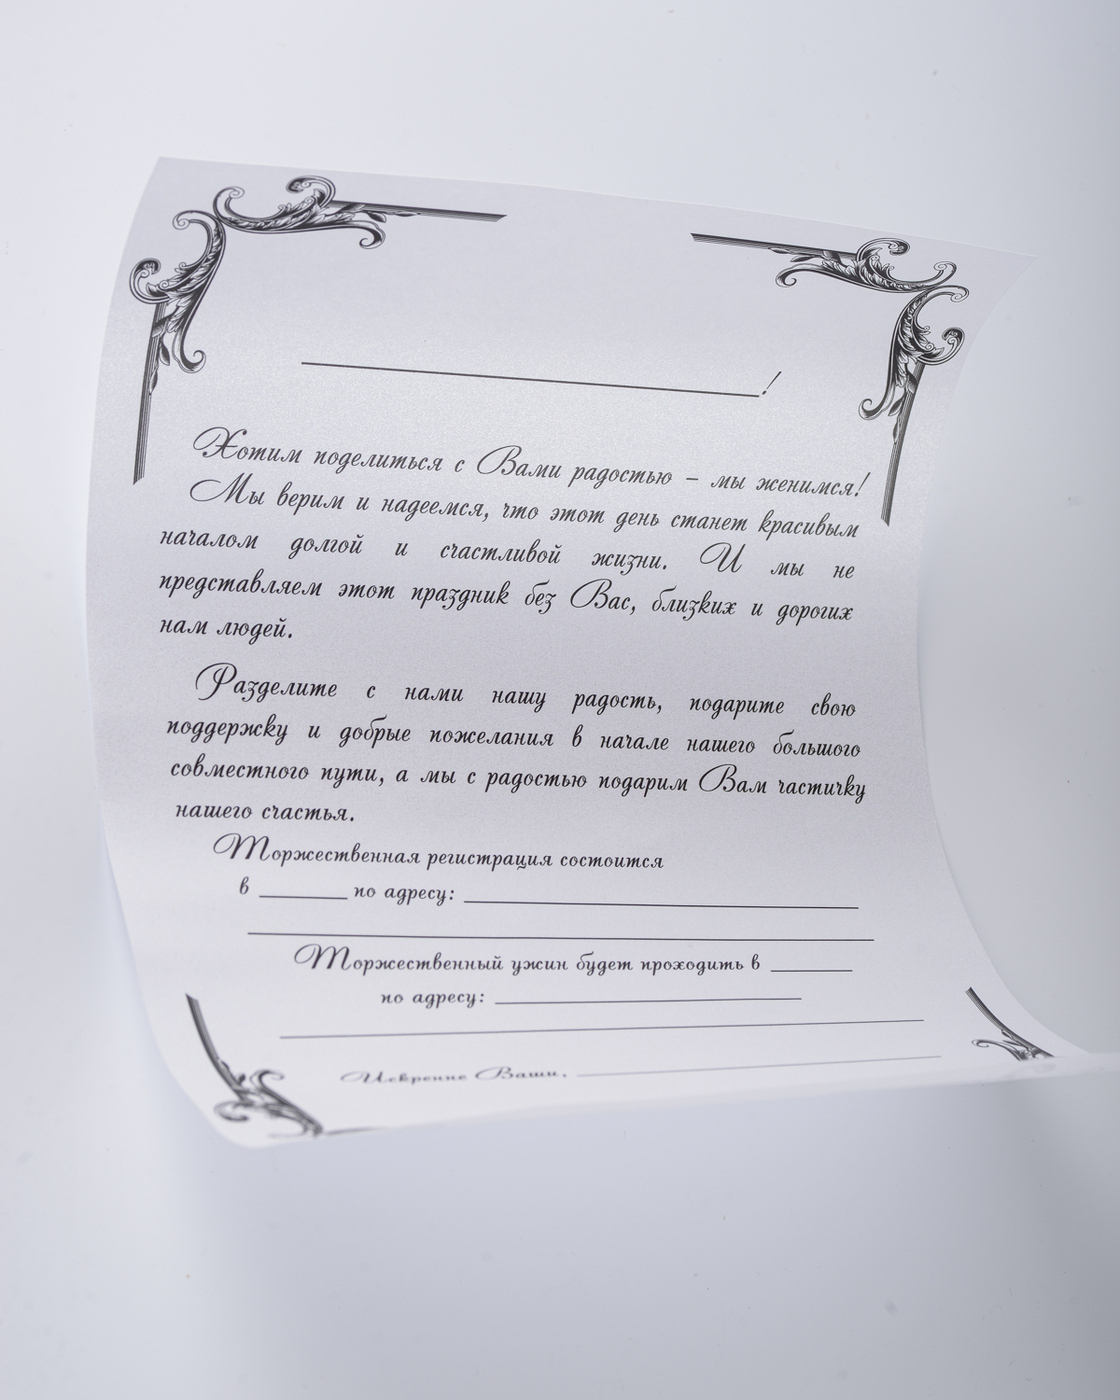 ____________________!
Хотим поделиться с Вами радостью – мы женимся!
Мы верим и надеемся, что этот день станет красивым
началом долгой и счастливой жизни. И мы не
представляем этот праздник без Вас, близких и дорогих
нам людей.
Разделите с нами нашу радость, подарите свою
поддержку и добрые пожелания в начале нашего большого
совместного пути, а мы с радостью подарим Вам частичку
нашего счастья.
Торжественная регистрация состоится
в ______ по адресу: ____________________
____________________
Торжественный ужин будет проходить в ______
по адресу: ____________________
____________________
Искренне Ваши, ____________________